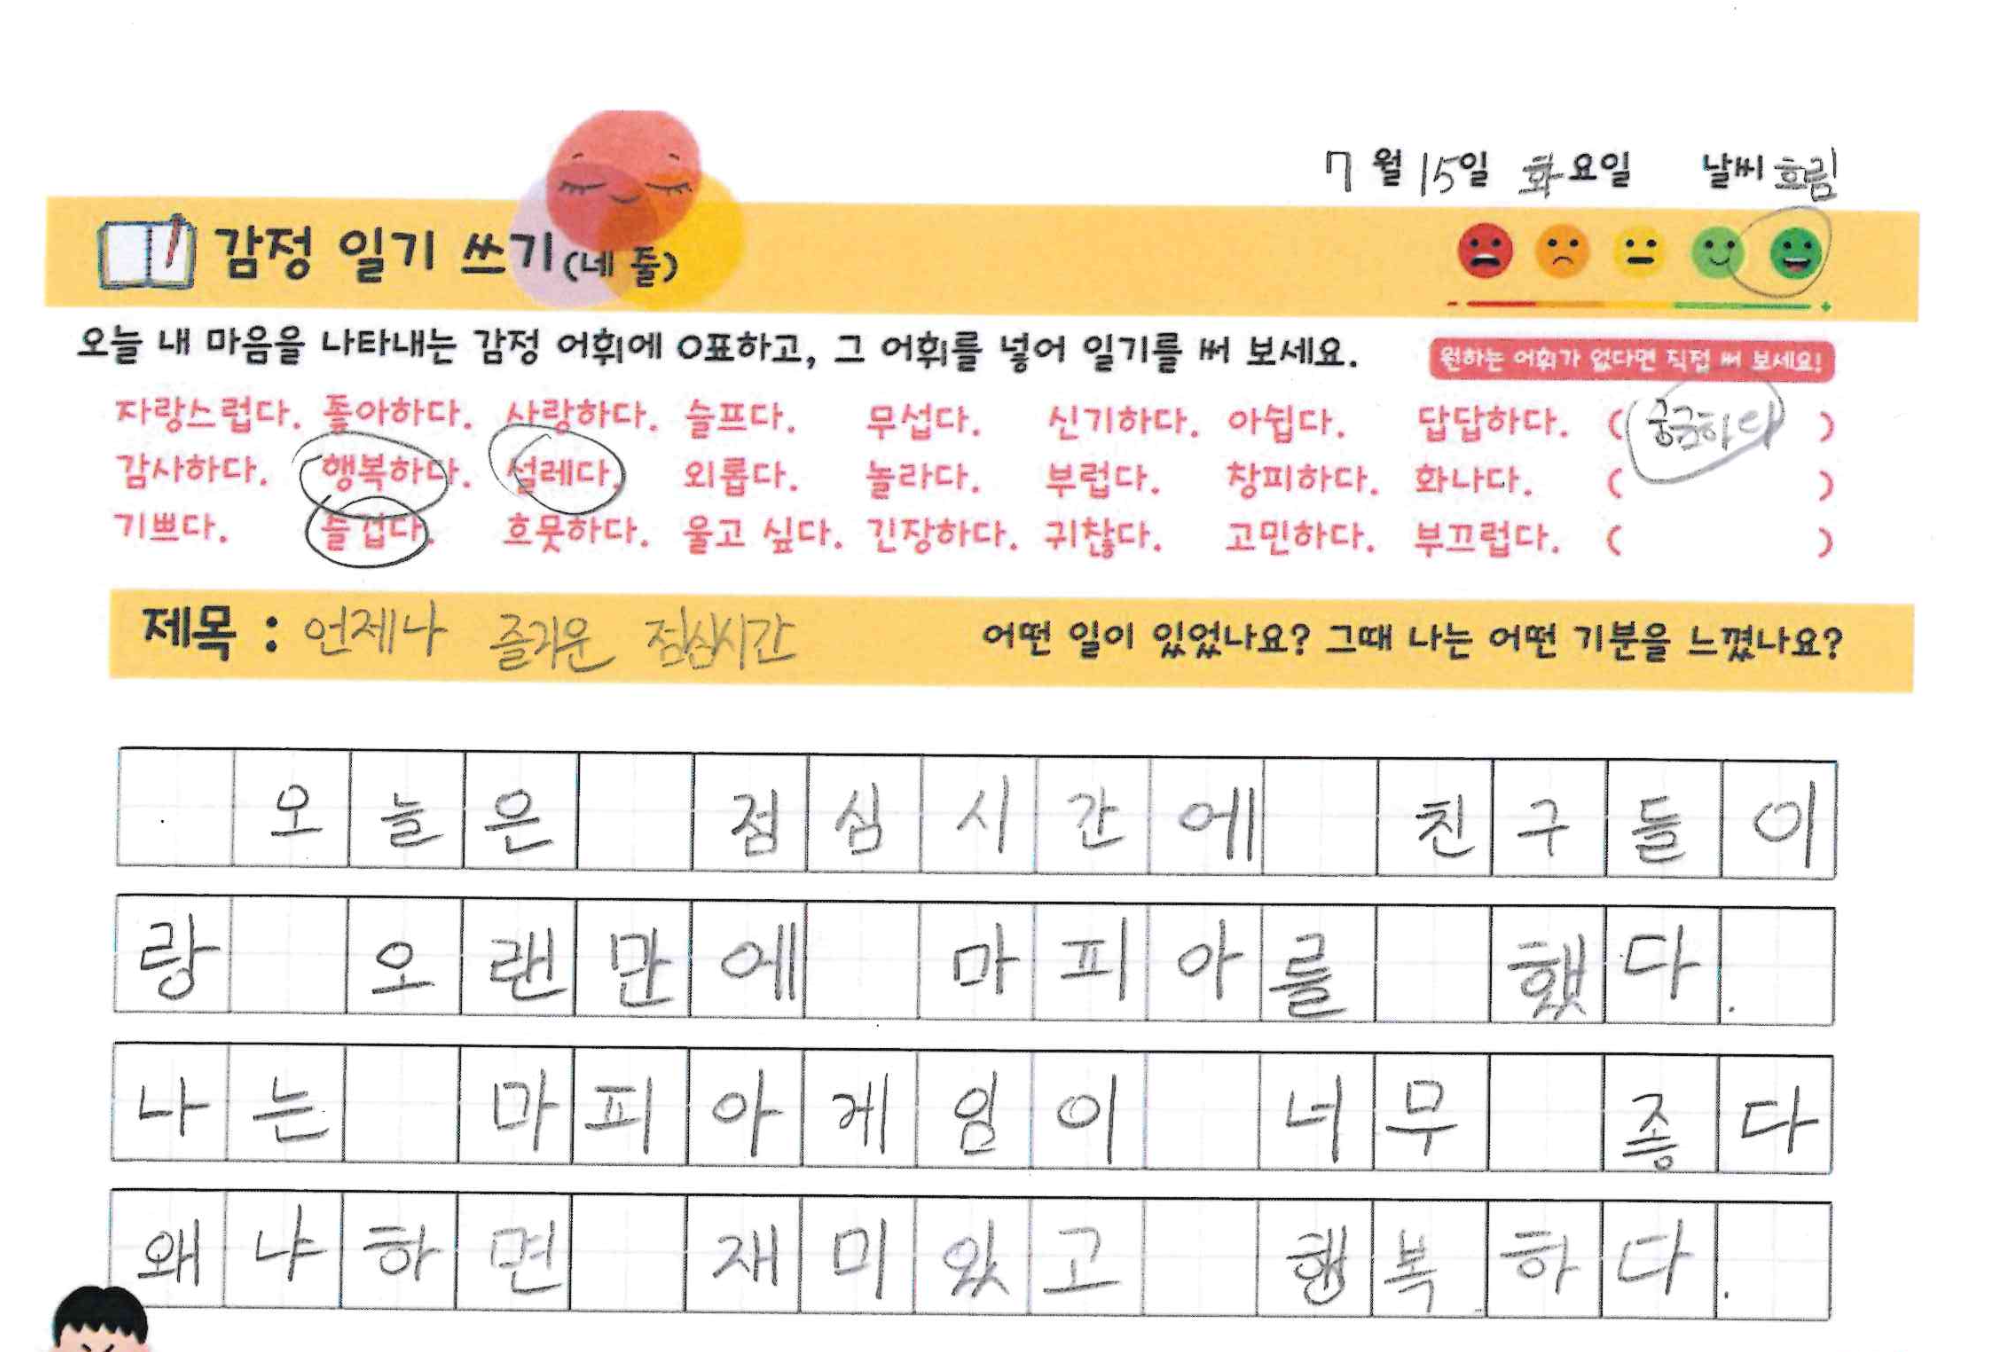 7월 15일 화요일 날씨 흐림
감정 일기 쓰기(네 줄)
오늘 내 마음을 나타내는 감정 어휘에 O표하고, 그 어휘를 넣어 일기를 써 보세요.
원하는 어휘가 없다면 직접 써 보세요!
자랑스럽다. 좋아하다. 사랑하다. 슬프다. 무섭다. 신기하다. 아쉽다. 답답하다. (궁금하다)
감사하다. 행복하다. 설레다. 외롭다. 놀라다. 부럽다. 창피하다. 화나다. ( )
기쁘다. 즐겁다. 흐뭇하다. 울고 싶다. 긴장하다. 귀찮다. 고민하다. 부끄럽다. ( )
제목 : 언제나 즐거운 점심시간 어떤 일이 있었나요? 그때 나는 어떤 기분을 느꼈나요?
오늘은 점심시간에 친구들이
랑 오랜만에 마피아를 했다.
나는 마피아게임이 너무 좋다
왜냐하면 재미있고 행복하다.